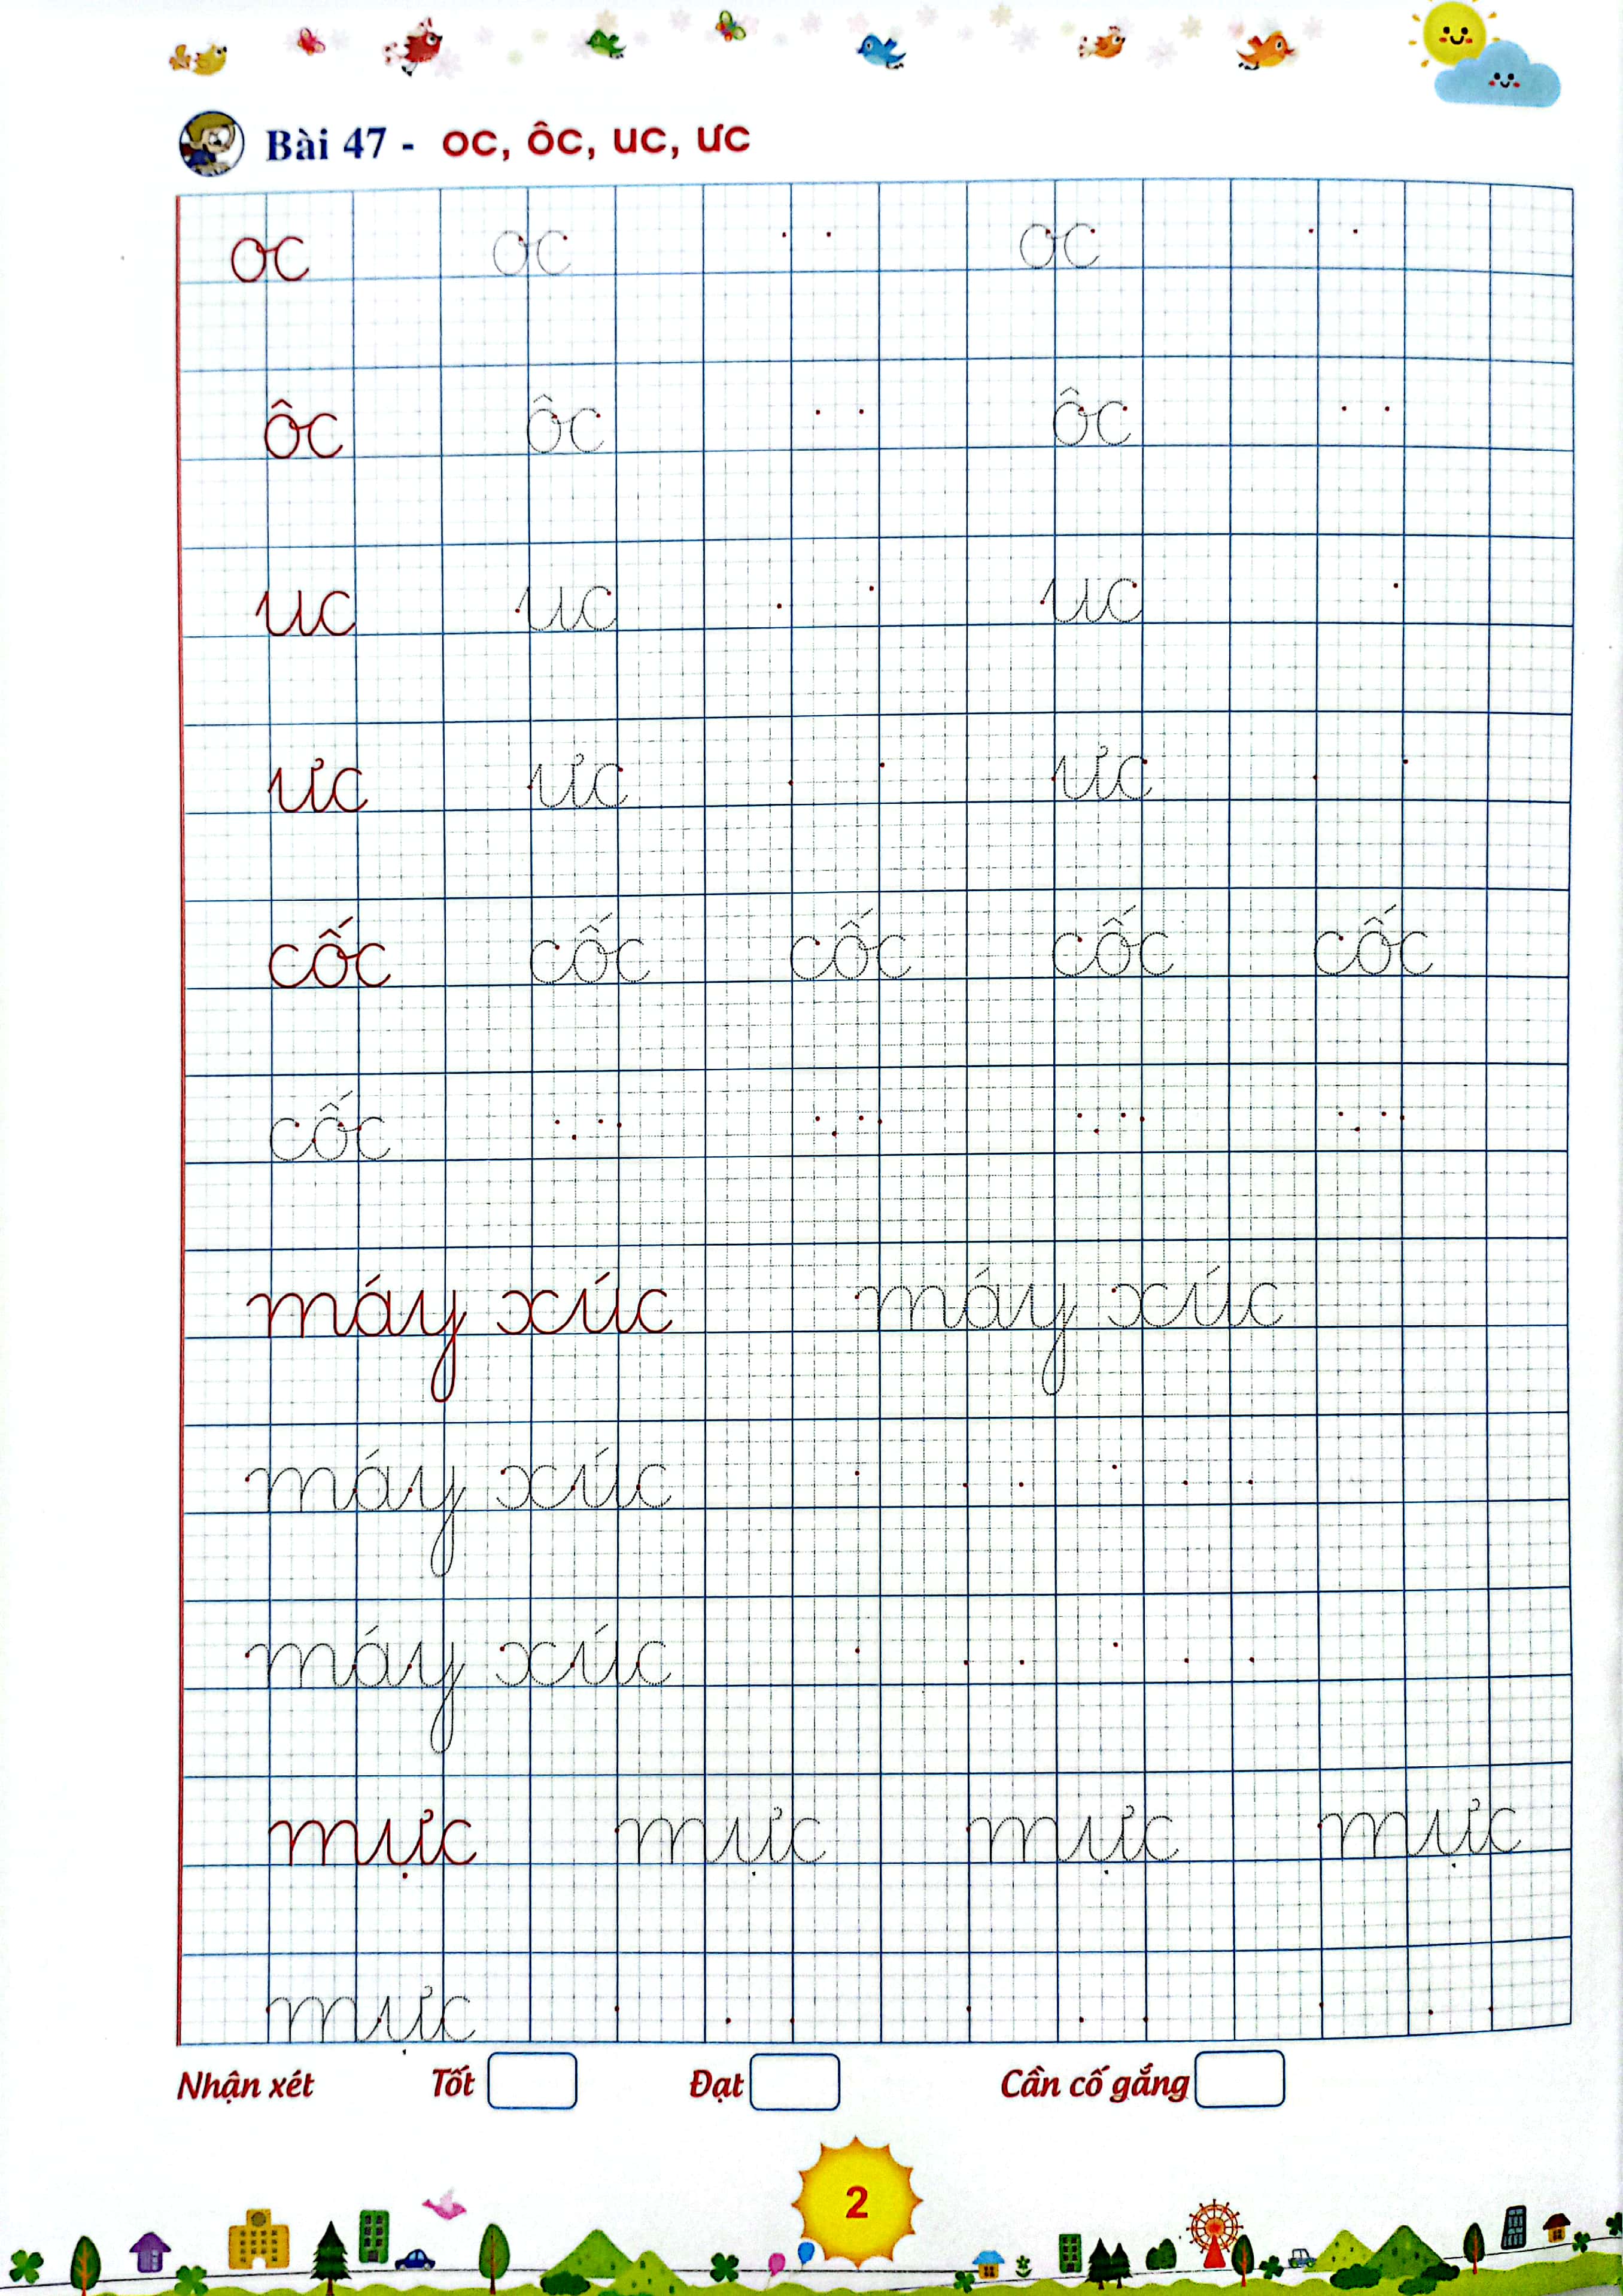 Bài 47 - oc, ôc, uc, ưc
oc oc oc
ôc ôc ôc
uc uc uc
ưc ưc ưc
cốc cốc cốc cốc cốc
cốc
máy xúc máy xúc
máy xúc
máy xúc
mực mực mực mực
mực
Nhận xét Tốt Đạt Cần cố gắng
2